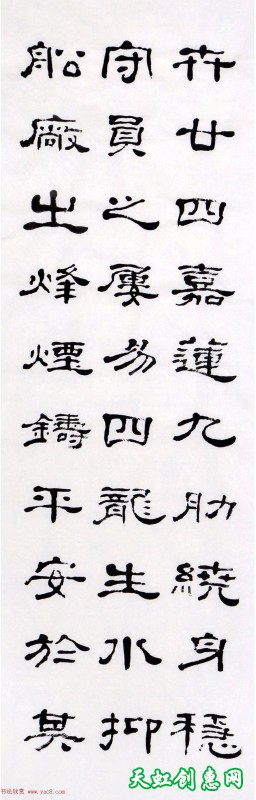 卉廿四嘉蓮九肋繞身穩
守員之屢易四龍生水抑
船廠出烽煙鑄平安於其
书法欣赏 www.yac8.com
天虹创惠网